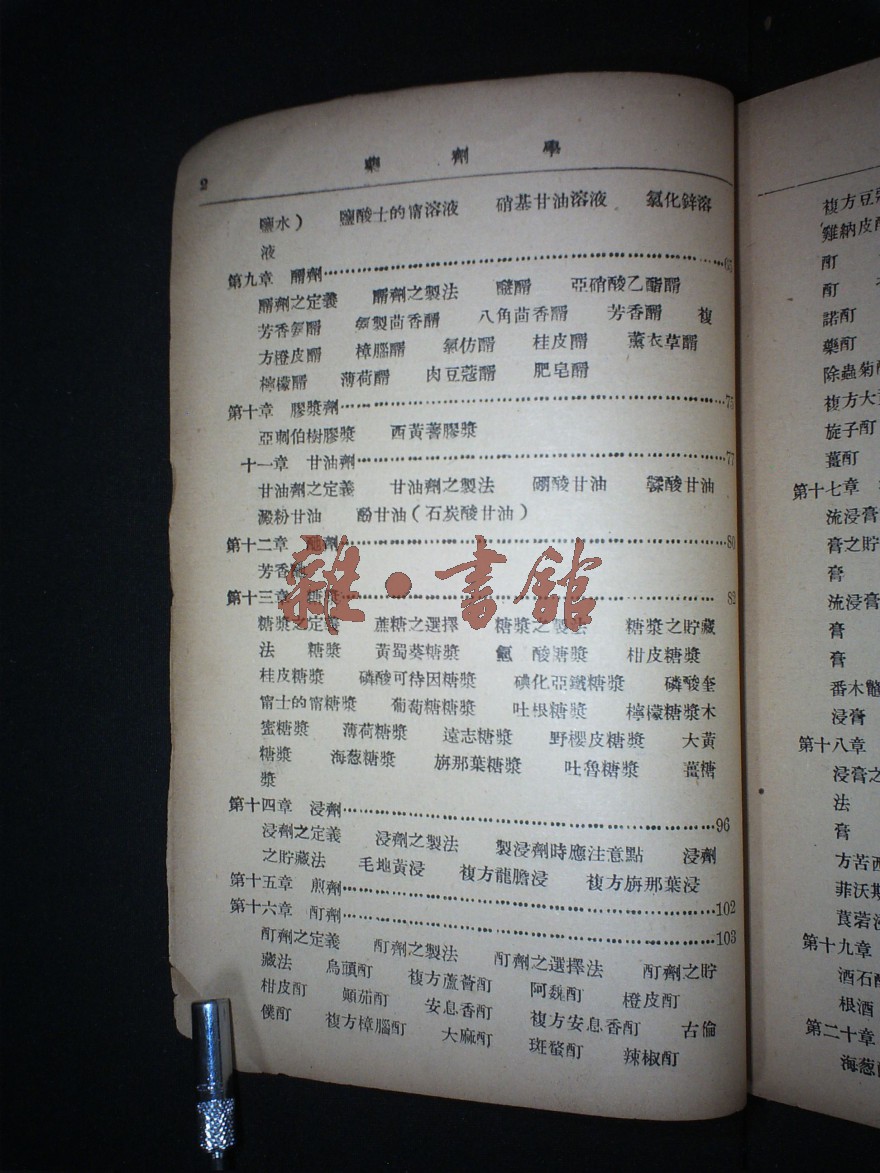 2 藥劑學
鹽水) 鹽酸士的甯溶液 硝基甘油溶液 氯化鋅溶
液……67
第九章 醑劑
醑劑之定義 醑劑之製法 醚醑 亞硝酸乙酯醑
芳香醑 製茴香醑 八角茴香醑 芳香醑 複
方橙皮醑 樟腦醑 氯仿醑 桂皮醑 薰衣草醑
檸檬醑 薄荷醑 肉豆蔻醑 肥皂醑
第十章 膠漿劑……75
亞剌伯樹膠漿 西黃蓍膠漿
十一章 甘油劑……77
甘油劑之定義 甘油劑之製法 硼酸甘油 鞣酸甘油
澱粉甘油 酚甘油(石炭酸甘油)
第十二章 劑……80
芳香
第十三章 糖漿……82
糖漿之定義 蔗糖之選擇 糖漿之製法 糖漿之貯藏
法 糖漿 黃蜀葵糖漿 酸糖漿 柑皮糖漿
桂皮糖漿 磷酸可待因糖漿 碘化亞鐵糖漿 磷酸奎
甯士的甯糖漿 葡萄糖糖漿 吐根糖漿 檸檬糖漿木
蜜糖漿 薄荷糖漿 遠志糖漿 野櫻皮糖漿 大黃
糖漿 海葱糖漿 旃那葉糖漿 吐魯糖漿 薑糖
漿
第十四章 浸劑……96
浸劑之定義 浸劑之製法 製浸劑時應注意點 浸劑
之貯藏法 毛地黃浸 複方龍膽浸 複方旃那葉浸
第十五章 煎劑……102
第十六章 酊劑……103
酊劑之定義 酊劑之製法 酊劑之選擇法 酊劑之貯
藏法 烏頭酊 複方蘆薈酊 阿魏酊 橙皮酊
柑皮酊 顛茄酊 安息香酊 複方安息香酊 古倫
僕酊 複方樟腦酊 大麻酊 斑蝥酊 辣椒酊
雜·書館
複方豆蔻
雞納皮酊
酊
酊
諾酊
藥酊
除蟲菊酊
複方大黃
旋子酊
薑酊
第十七章
流浸膏
膏之貯
膏
流浸膏
膏
膏
番木鱉
浸膏
第十八章
浸膏之
法
膏
方苦西
菲沃斯
莨菪浸
第十九章
酒石酸
根酒
第二十章
海葱